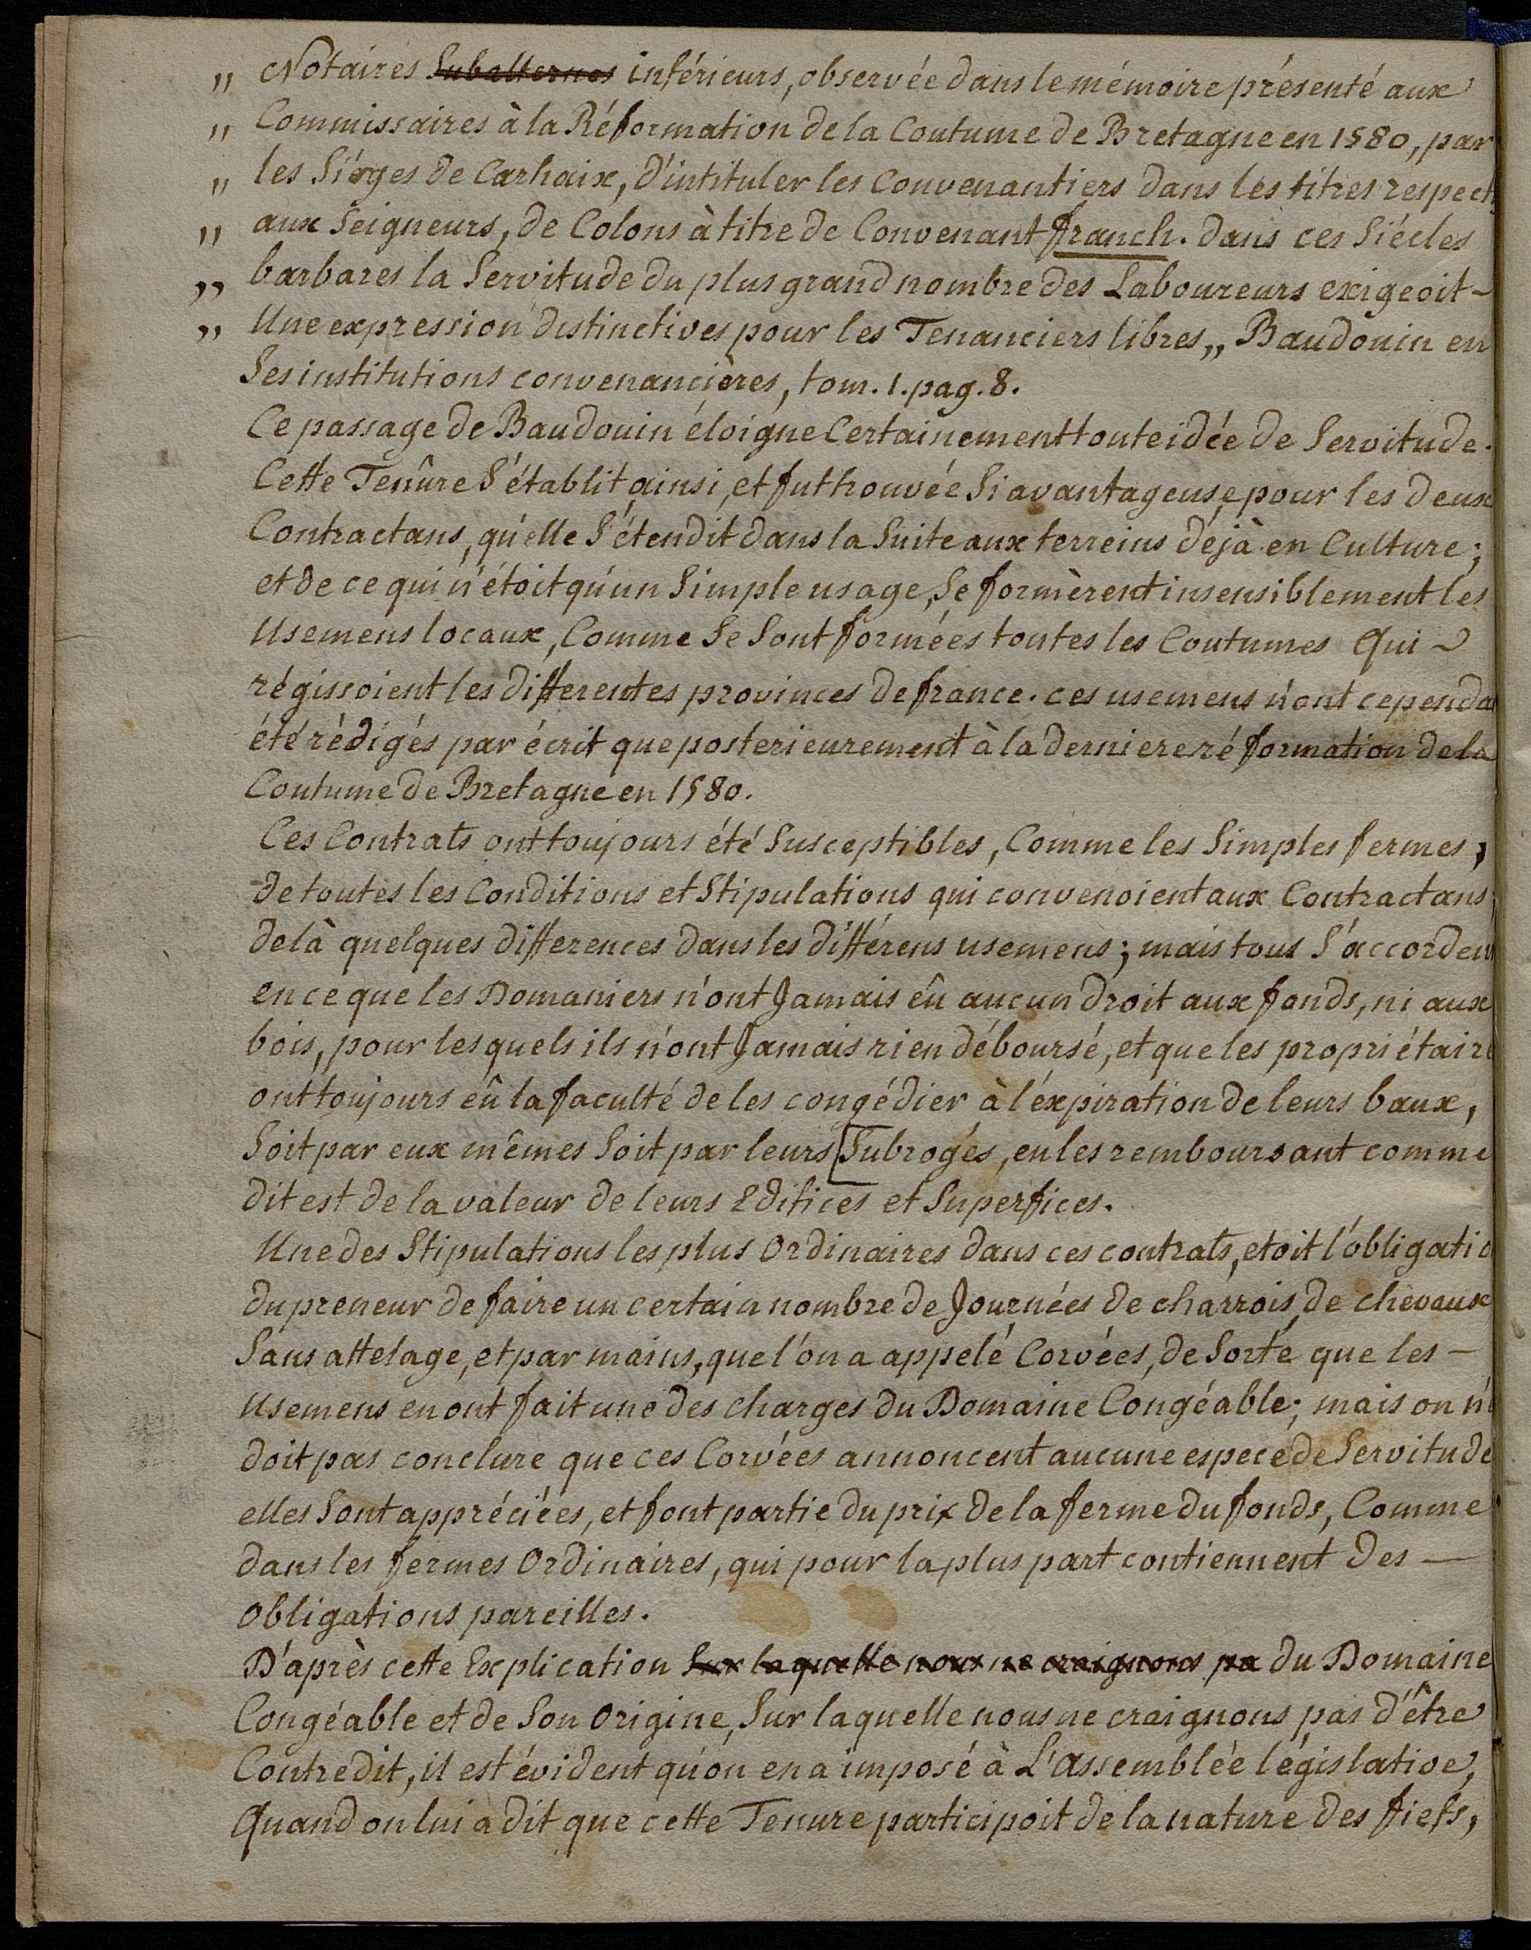 „ Notaires ~~Subalternes~~ inférieurs, observée dans le mémoire présenté aux
„ Commissaires à la Réformation de la Coutume de Bretagne en 1580, par
„ les Siéges de Carhaix, d'intituler les Convenantiers dans les titres respect.
„ aux Seigneurs, de Colons à titre de Convenant franch. dans ces Siécles
„ barbares la Servitude du plus grand nombre des Laboureurs exigeoit –
„ Une expression distinctives pour les Tenanciers libres„ Baudouin en
Ses institutions convenancières, tom. 1. pag. 8.
Ce passage de Baudouin éloigne Certainement toute idée de Servitude.
Cette Tenûre S'établit ainsi, et fut trouvée Si avantageuse pour les deux
Contractans, qu'elle S'étendit dans la Suite aux terreins déjà en Culture;
et de ce qui n'étoit qu'un Simple usage, Se formèrent insensiblement les
Usemens locaux, Comme Se Sont formées toutes les Coutumes Qui ~
régissoient les differentes provinces de france. ces usemens n'ont cependa
été rédigés par écrit que posterieurement à la derniere réformation de la
Coutume de Bretagne en 1580.
Ces Contrats ont toujours été Susceptibles, Comme les Simples fermes,
de toutes les Conditions et Stipulations qui convenoient aux Contractans
de là quelques differences dans les différens usemens; mais tous S'accorden
en ce que les Domaniers n'ont Jamais eû aucun droit aux fonds, ni aux
bois, pour lesquels ils n'ont Jamais rien déboursé, et que les propriétaire
ont toujours eû la faculté de les congédier à l'éxpiration de leurs baux,
Soit par eux mêmes Soit par leurs [Subrogés, en les remboursant comme
dit est de la valeur de leurs Edifices et Superfices.
Une des Stipulations les plus Ordinaires dans ces contrats, etoit l'obligatio
du preneur de faire un certain nombre de Journées de charrois, de chevaux
Sans attelage, et par mains, que l'on a appelé Corvées, de Sorte que les –
Usemens en ont fait une des charges du Domaine Congéable; mais on n'
doit pas conclure que ces Corvées annoncent aucune espece de Servitude
elles Sont appréciées, et font partie du prix de la ferme du fonds, Comme
dans les fermes Ordinaires, qui pour la plus part contiennent des –
Obligations pareilles.
D'après cette Explication ~~Sur laquelle nous ne craignons pa~~ du Domaine
Congéable et de Son Origine, Sur laquelle nous ne craignons pas d'être
Contredit, il est évident qu'on en a imposé à L'Assemblée législative,
Quand on lui a dit que cette Tenure participoit de la nature des fiefs,